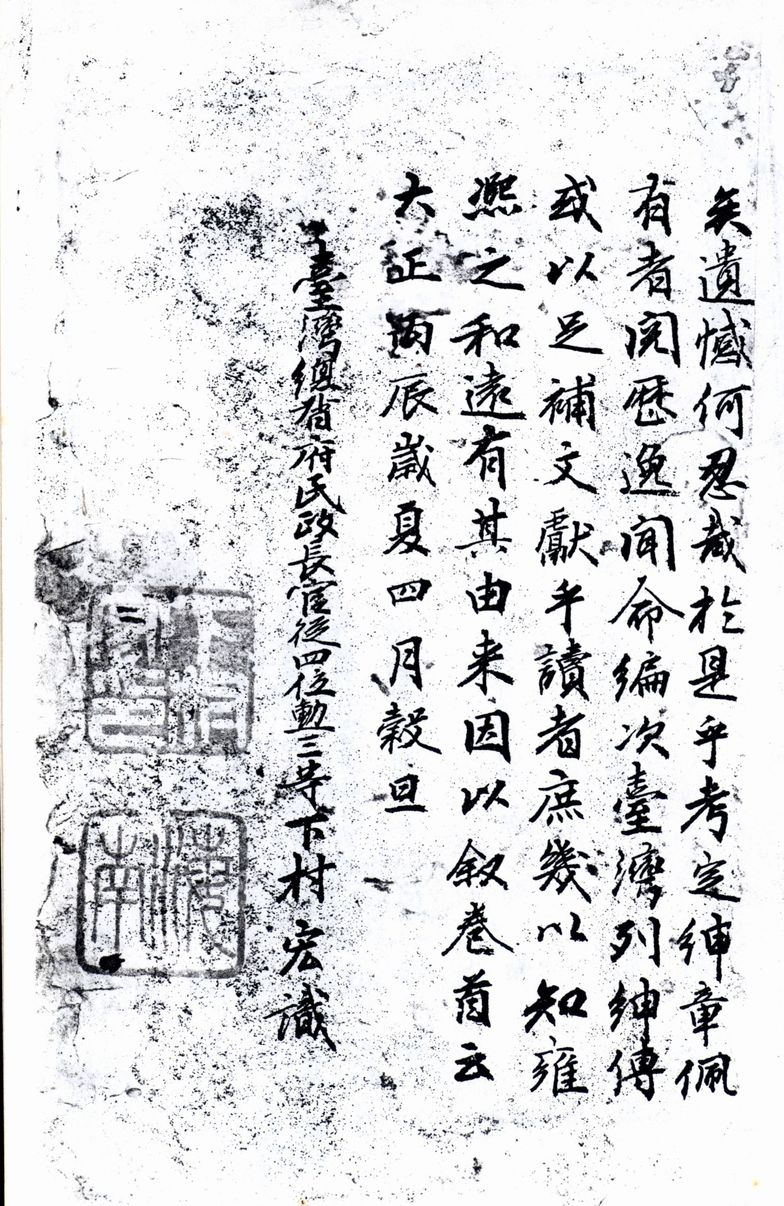 矣遺憾何忍哉於是乎考定紳章佩
有者閱歷逸聞命編次臺灣列紳傳
或以足補文獻乎讀者庶幾以知雍
熈之和遠有其由来因以叙卷首云
大正丙辰歲夏四月穀旦
臺灣總督府民政長官從四位勳三等下村宏識
下村宏印
海南